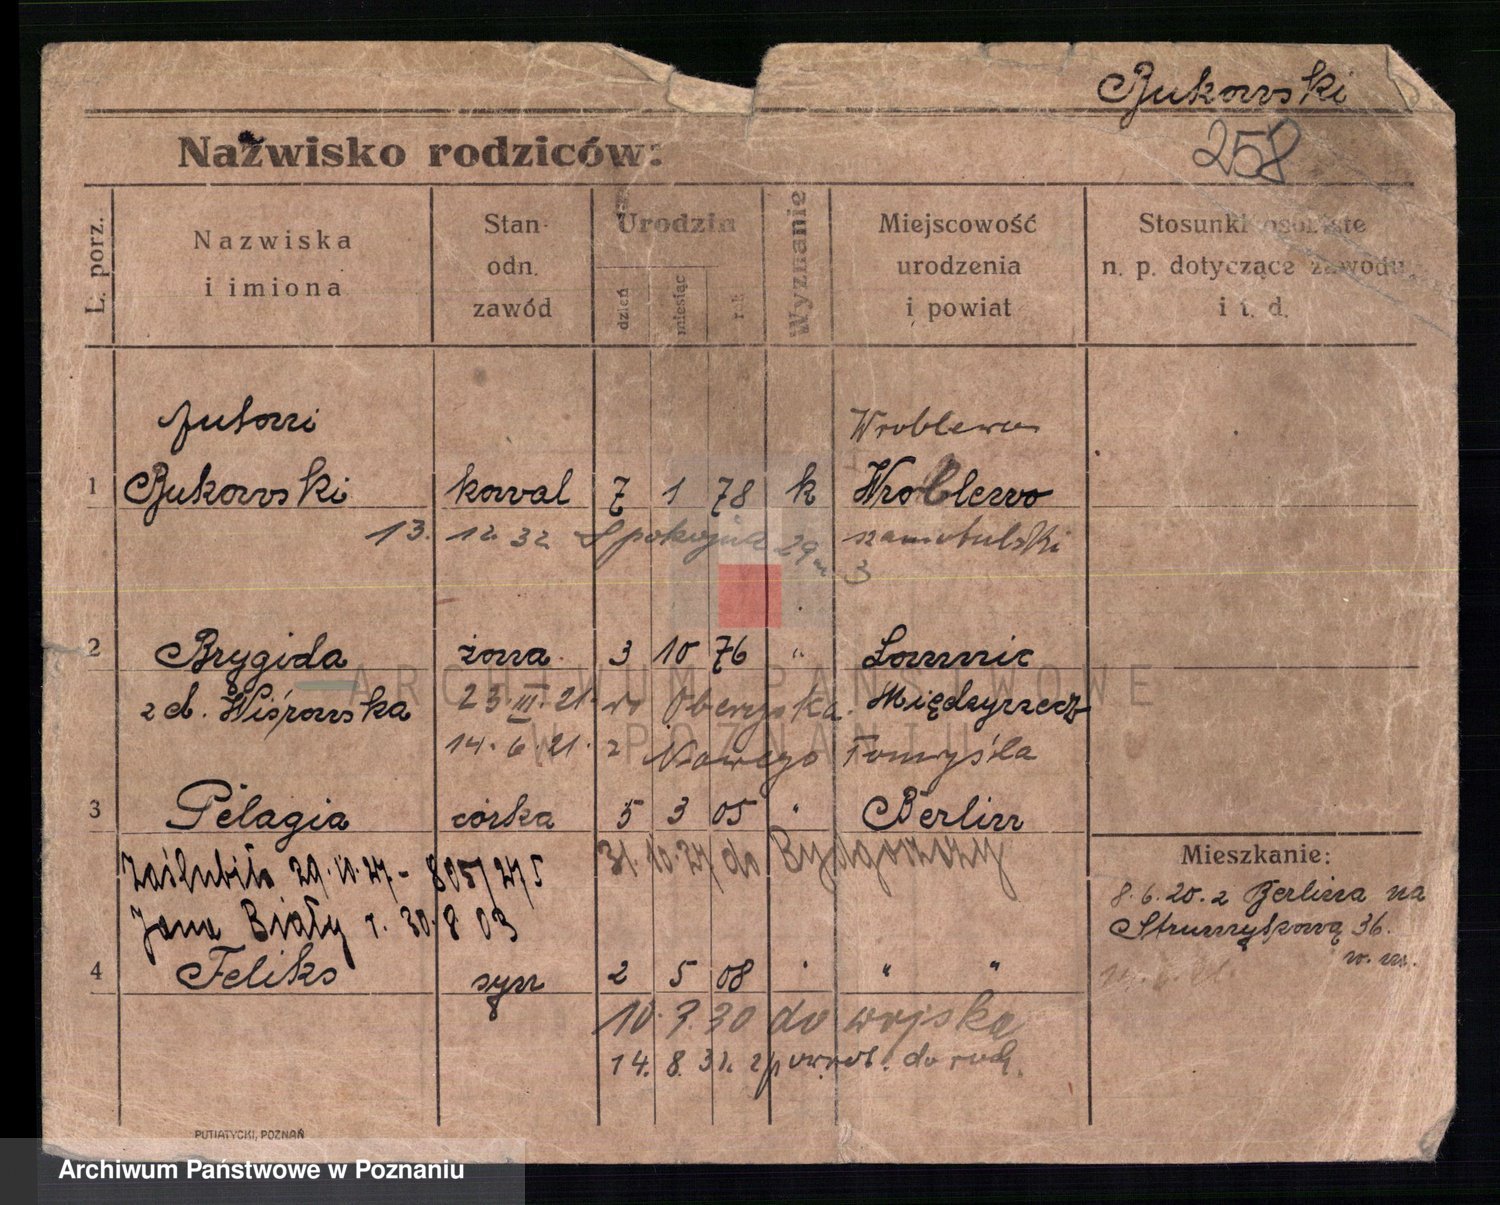 Bukowski
258
Nazwisko rodziców:
L. porz.
Nazwiska
i imiona
Stan-
odn.
zawód
Urodzin
dzień
miesiąc
rok
Wyznanie
Miejscowość
urodzenia
i powiat
Stosunki osobiste
n. p. dotyczące zawodu
i t. d.
Antoni Wroblewo
1 Bukowski kowal 7 1 78 k Wroblewo
13. 12. 32 Spokojna 29 m 3 szamotulski
2 Brygida żona 3 10 76 " Lomnic
z d. 23. III. 21. w Międzyrzecz
14. 6. 21. z Nowego Tomyśla
3 Pelagia córka 5 3 05 " Berlin
31. 10. 27 do Bydgoszczy
Zaślubiła 29. 10. 27 - 805/27 S
Jana Biały r. 30. 8 03
4 Feliks syn 2 5 08 " " "
10. 3. 30 do wojska
14. 8. 31. z powrot. do rodz.
Mieszkanie:
8. 6. 20. z Berlina na
Strumykową 36.
w. m.
PUTIATYCKI, POZNAŃ
ARCHIWUM PAŃSTWOWE
W POZNANIU
Archiwum Państwowe w Poznaniu